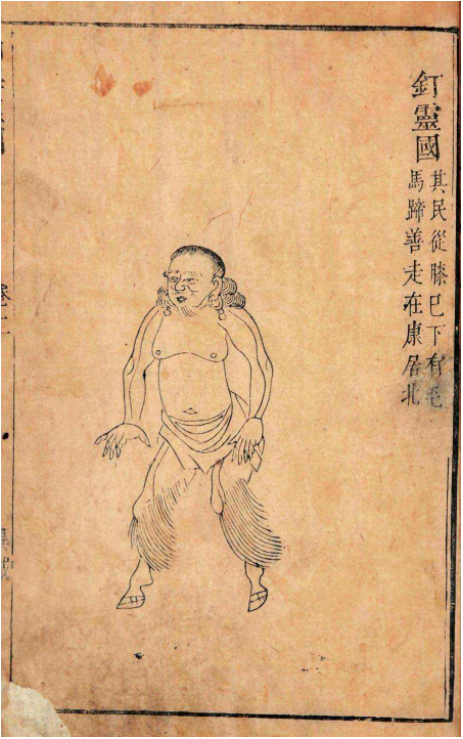 釘靈國
其民從膝已下有毛
馬蹄善走在康居北
卷二